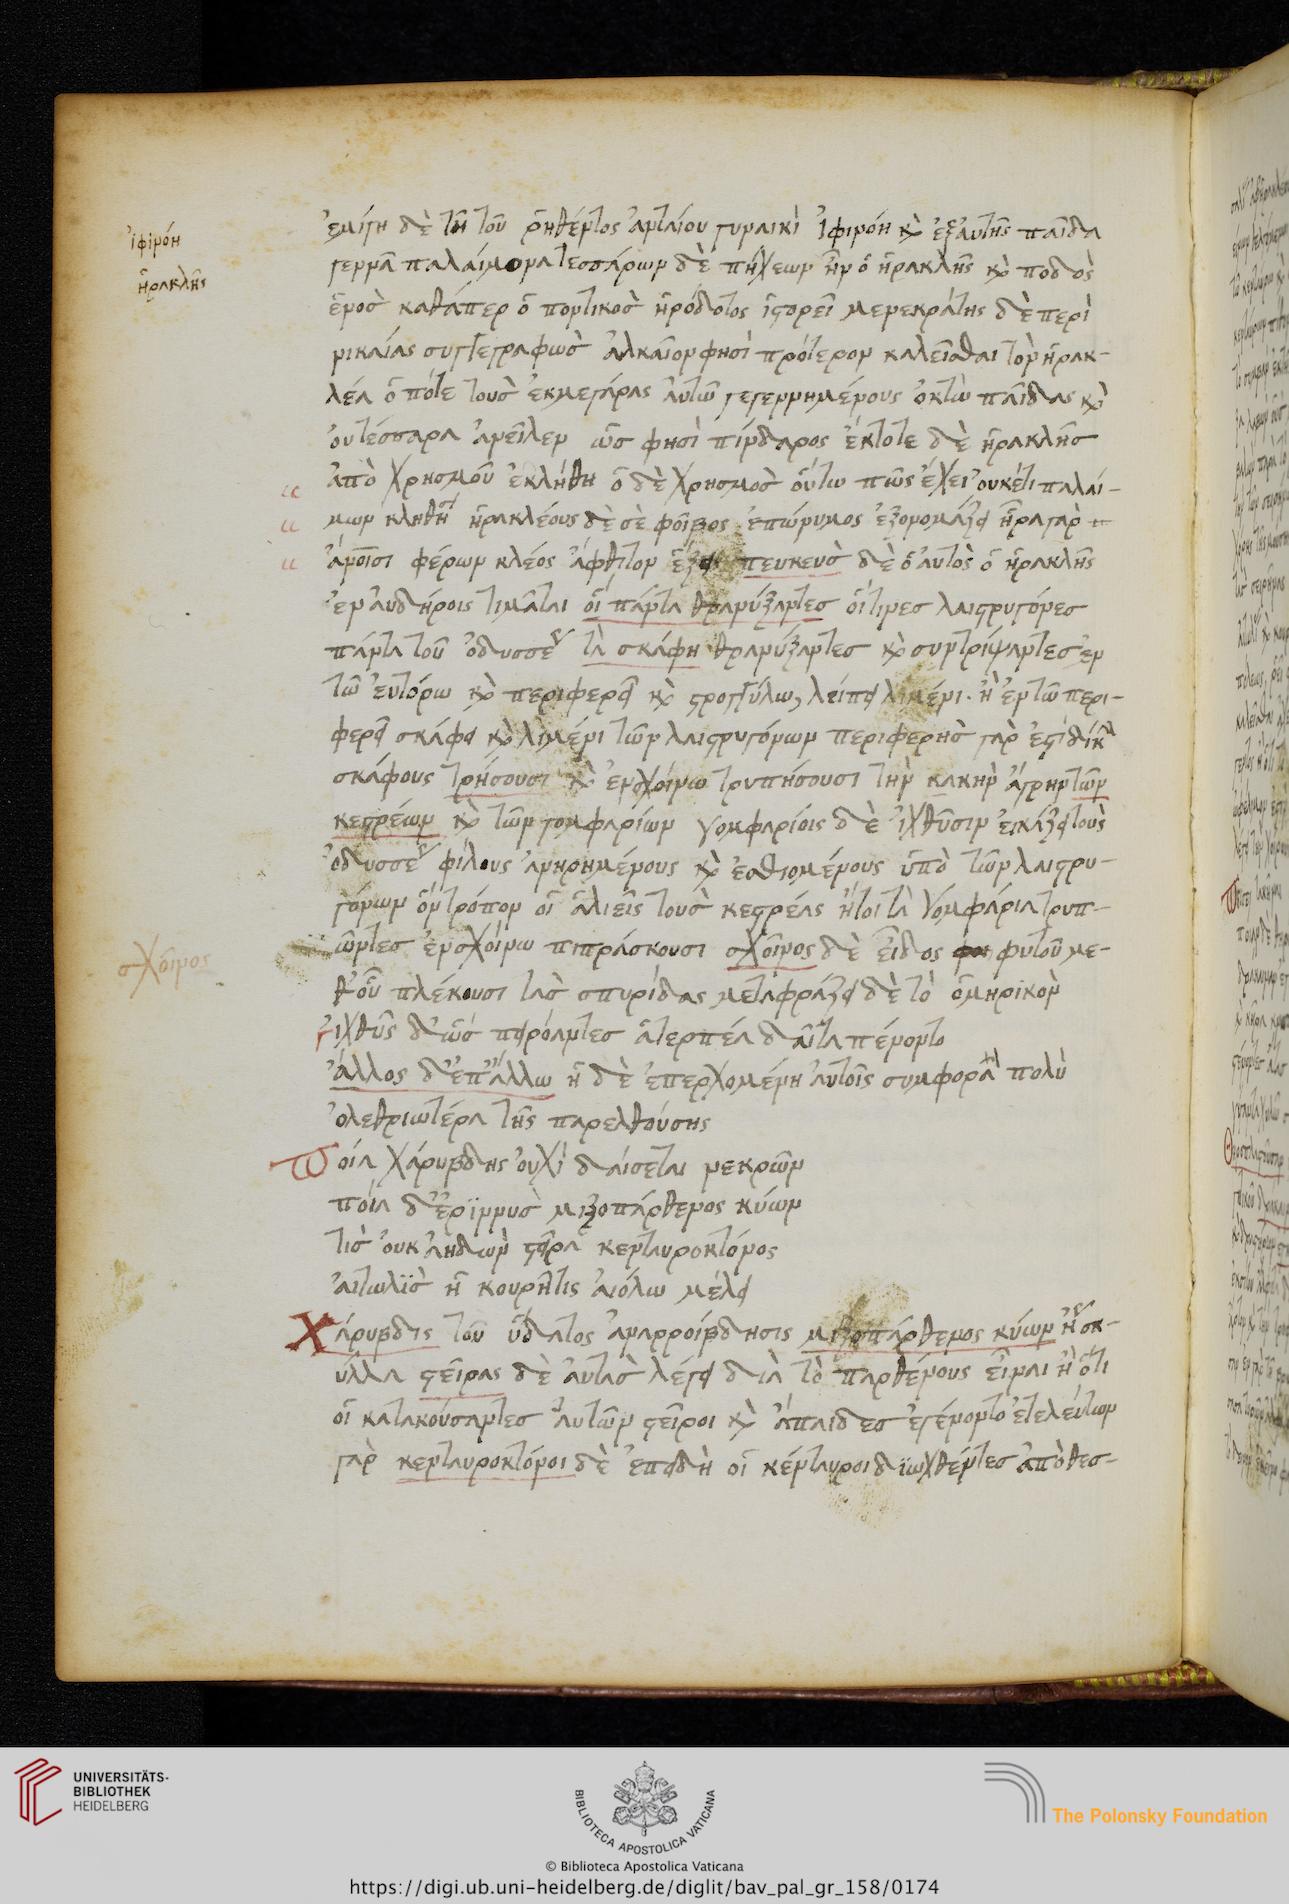 ἰφινόη
ἡρακλῆς
ἐμίγη δὲ τῆ τοῦ ῥηθέντος ἀνταίου γυναικὶ ἰφινόη καὶ ἐξ αὐτῆς παῖδα
γεννᾶ παλαίμονα τεσσάρων δὲ πήχεων ἦν ὁ ἡρακλῆς καὶ ποδὸς
ἑνὸς καθάπερ ὁ ποντικὸς ἡρόδοτος ἱστορεῖ μενεκράτης δὲ περὶ
νικαίας συγγεγραφὼς ἀλκαῖον φησὶ πρότερον καλεῖσθαι τὸν ἡρακ-
λέα ὁπότε τοὺς ἐκ μεγάρας αὐτῶ γεγεννημένους ὀκτὼ παῖδας καὶ
οὐ τέσσαρα ἀνεῖλεν ὥς φησὶ πίνδαρος ἔκτοτε δὲ ἡρακλῆς
ἀπὸ χρησμοῦ ἐκλήθη ὁ δὲ χρησμὸς οὕτω πῶς ἔχει οὐκέτι παλαί-
μων κληθήση ἡρακλέους δὲ σὲ φοῖβος ἐπώνυμος ἐξονομάζει ἦρα γὰρ
ἀν
οισι φέρων κλέος ἄφθιτον ἕξεις πευκεὺς δὲ ὁ αὐτὸς ὁ ἡρακλῆς
ἐν αὐδήροις τιμᾶται οἱ πάντα θρανύξαντες οἵτινες λαιστρυγόνες
πάντα τοῦ ὀδυσσέως τὰ σκάφη θρανύξαντες καὶ συντρίψαντες ἐν
τῶ εὐτόρνω καὶ περιφερεῖ καὶ στρογγύλω, λείπει λιμένι. ἢ ἐν τῶ περι-
φερεῖ σκάφει καὶ λιμένι τῶν λαιστρυγόνων περιφερὴς γὰρ ἐστὶ δίκην
σκάφους τρήσουσι καὶ ἐν σχοίνω τρυπήσουσι τὴν κακὴν ἄγρην τῶν
κεστρέων καὶ τῶν γομφαρίων γομφαρίοις δὲ ἰχθῦσιν εἰκάζει τοὺς
ὀδυσσέως φίλους ἀνηρημένους καὶ ἐσθιομένους ὑπὸ τῶν λαιστρυ-
γόνων ὃν τρόπον οἱ ἁλιεῖς τοὺς κεστρέας ἤτοι τὰ γομφάρια τρυπ-
ῶντες ἐν σχοίνω πιπράσκουσι σχοῖνος δὲ εἶδος φυτοῦ με-
σχοῖνος
θ' οὗ πλέκουσι τὰς σπυρίδας μεταφράζει δὲ τὸ ὁμηρικὸν
ἰχθῦς δ' ὣς πείροντες ἀτερπέα δαῖτα πένοντο
ἄλλος δ' ἐπ' ἄλλω ἡ δὲ ἐπερχομένη αὐτοῖς συμφορὰ πολὺ
ὀλεθριωτέρα τῆς παρελθούσης
Ποία χάρυβδης οὐχὶ δαίσεται νεκρῶν
ποία δ' ἐρϊννὺς μιξοπάρθενος κύων
τίς οὐκ ἀηδὼν στεῖρα κενταυροκτόνος
αἰτωλὶς ἢ κουρῆτις αἰόλω μέλει
Χάρυβδις τοῦ ὕδατος ἀναρροίβδησις μιξοπάρθενος κύων ἤγουν σκ-
ύλλα στεῖρας δὲ αὐτὰς λέγει διὰ τὸ παρθένους εἶναι ἢ ὅτι
οἱ κατακούσαντες αὐτῶν στεῖροι καὶ ἄπαιδες ἐγένοντο ἐτελεύτων
γὰρ κενταυροκτόνοι δὲ ἐπειδὴ οἱ κένταυροι διωχθέντες ἀπὸ θεσ-
UNIVERSITÄTS-
BIBLIOTHEK
HEIDELBERG
BIBLIOTHECA APOSTOLICA VATICANA
The Polonsky Foundation
© Biblioteca Apostolica Vaticana
https://digi.ub.uni-heidelberg.de/diglit/bav_pal_gr_158/0174